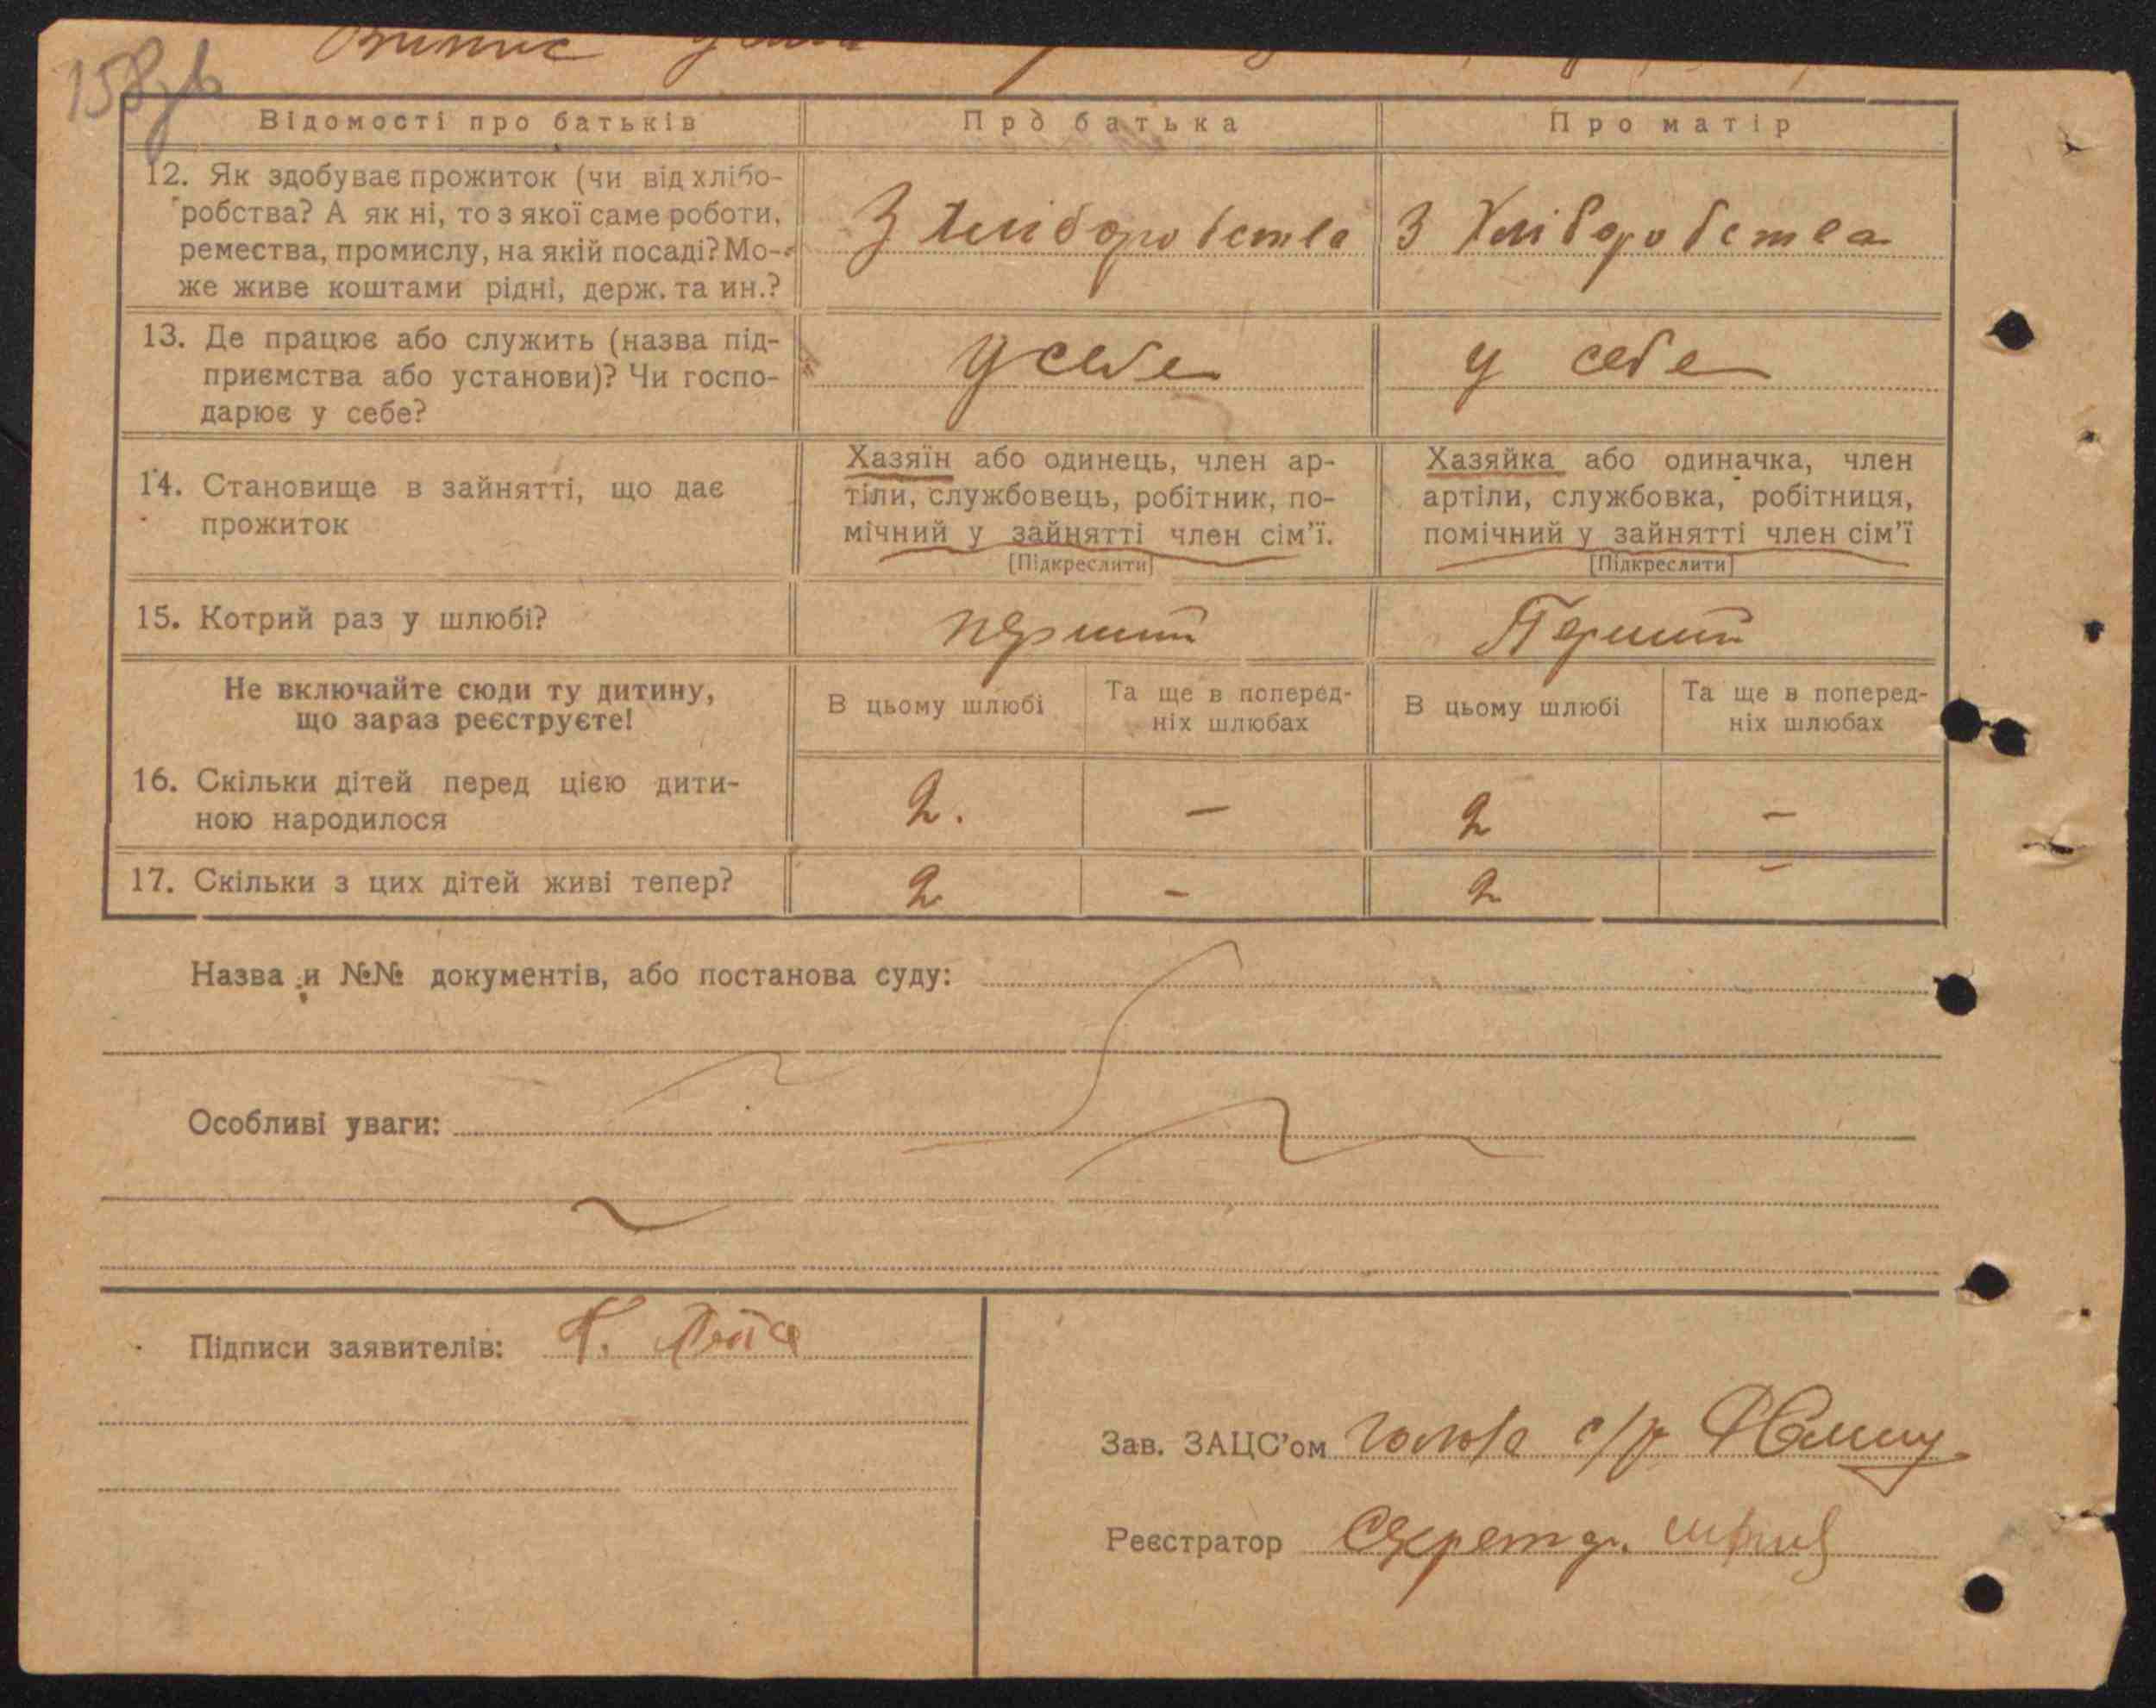 158зв
Випис
Відомості про батьків Про батька Про матір
12. Як здобуває прожиток (чи від хлібо-
робства? А як ні, то з якої саме роботи,
ремества, промислу, на якій посаді? Мо-
же живе коштами рідні, держ. та ин.?
З хліборобства З хліборобства
13. Де працює або служить (назва під-
приємства або установи)? Чи госпо-
дарює у себе?
У себе У себе
14. Становище в зайнятті, що дає
прожиток
Хазяїн або одинець, член ар-
тіли, службовець, робітник, по-
мічний у зайнятті член сім'ї.
[Підкреслити]
Хазяйка або одиначка, член
артіли, службовка, робітниця,
помічний у зайнятті член сім'ї
[Підкреслити]
15. Котрий раз у шлюбі? перший Перший
Не включайте сюди ту дитину,
що зараз реєструєте!
В цьому шлюбі Та ще в поперед-
ніх шлюбах
В цьому шлюбі Та ще в поперед-
ніх шлюбах
16. Скільки дітей перед цією дити-
ною народилося
2. – 2 –
17. Скільки з цих дітей живі тепер? 2 – 2 –
Назва и №№ документів, або постанова суду:
Особливі уваги:
Підписи заявителів:
Зав. ЗАЦС'ом голова с/р
Реєстратор Секретар